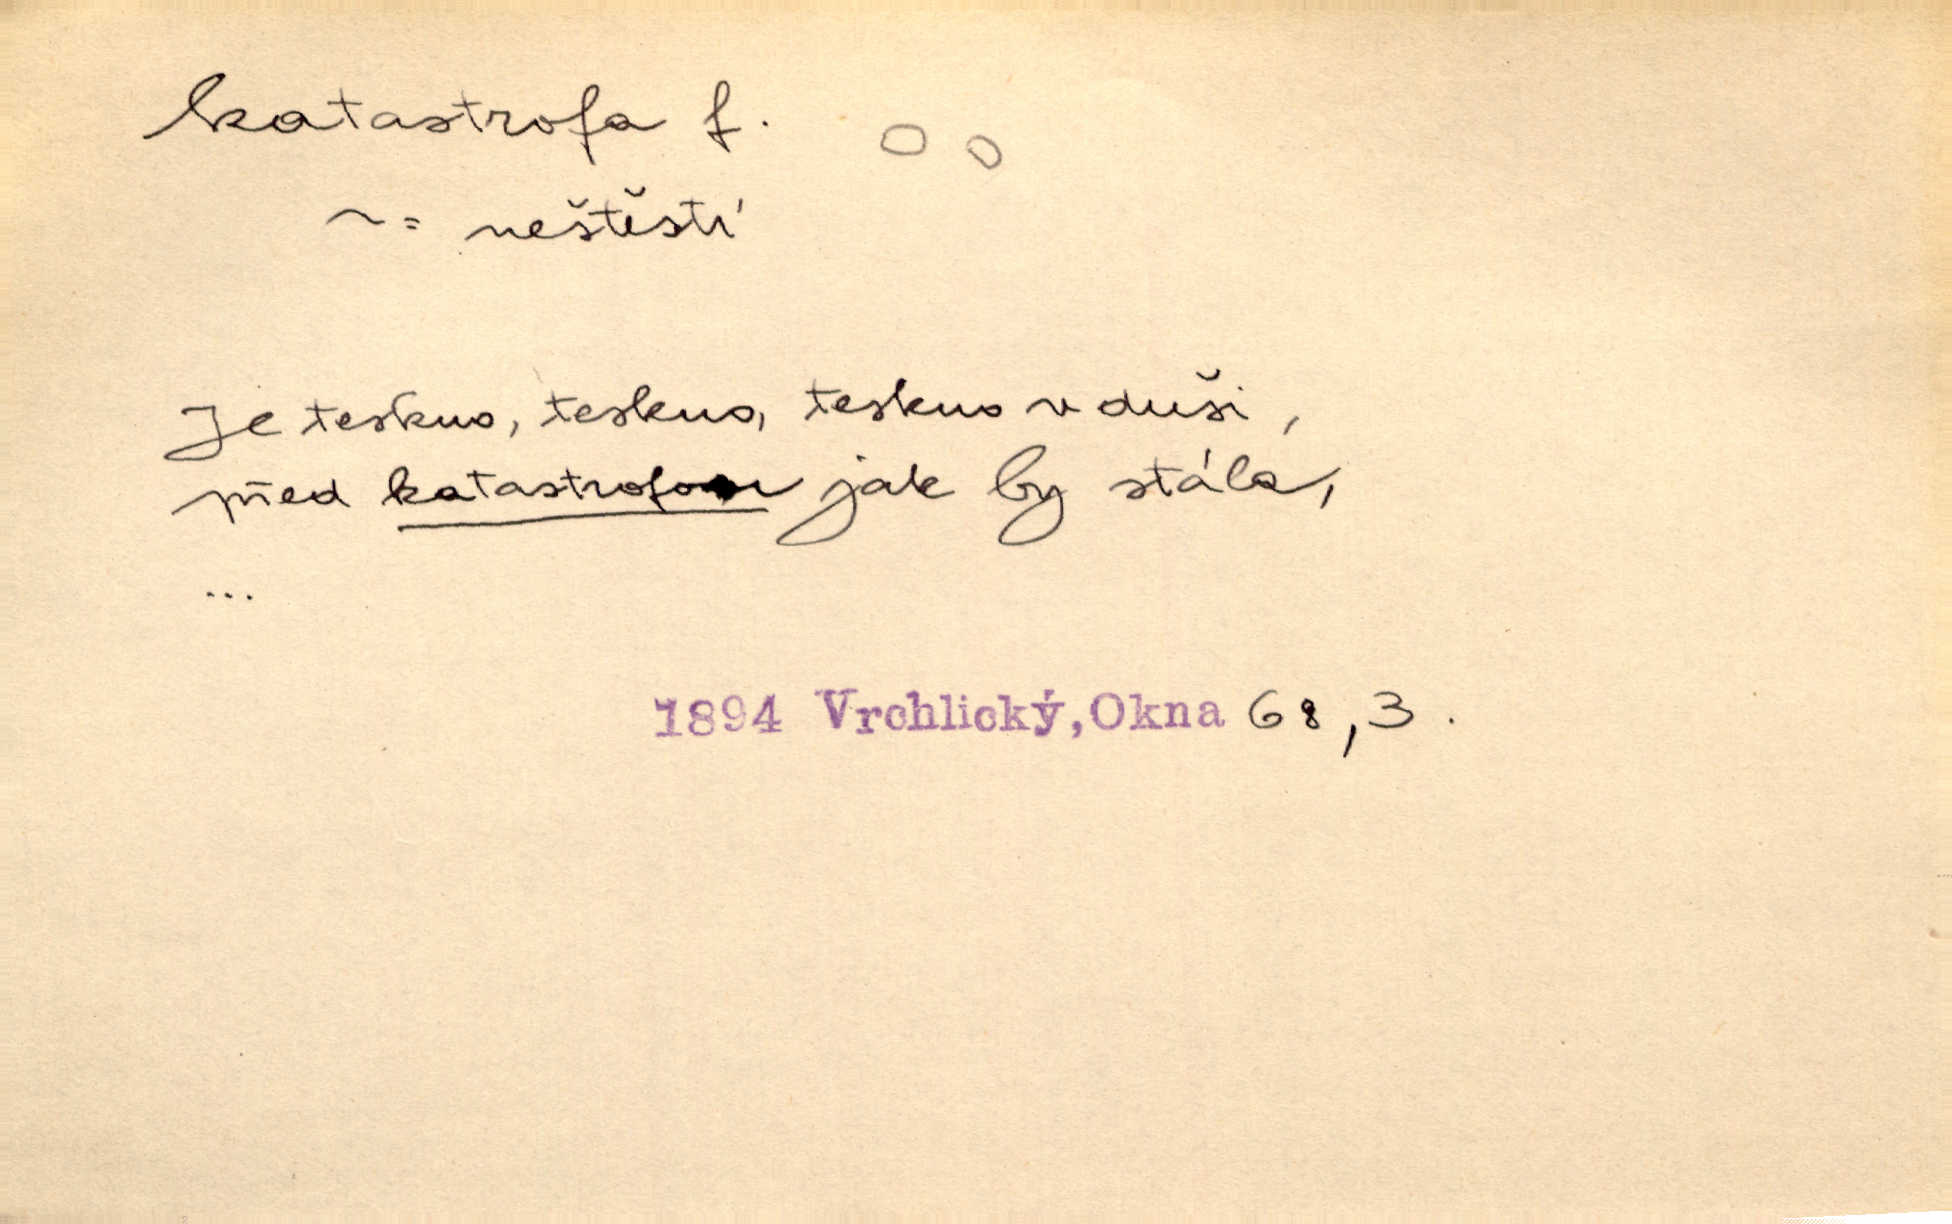 katastrofa f. 0 0
~ = neštěstí
Je teskno, teskno, teskno v duši,
před katastrofou jak by stála,
...
1894 Vrchlický, Okna 68, 3.